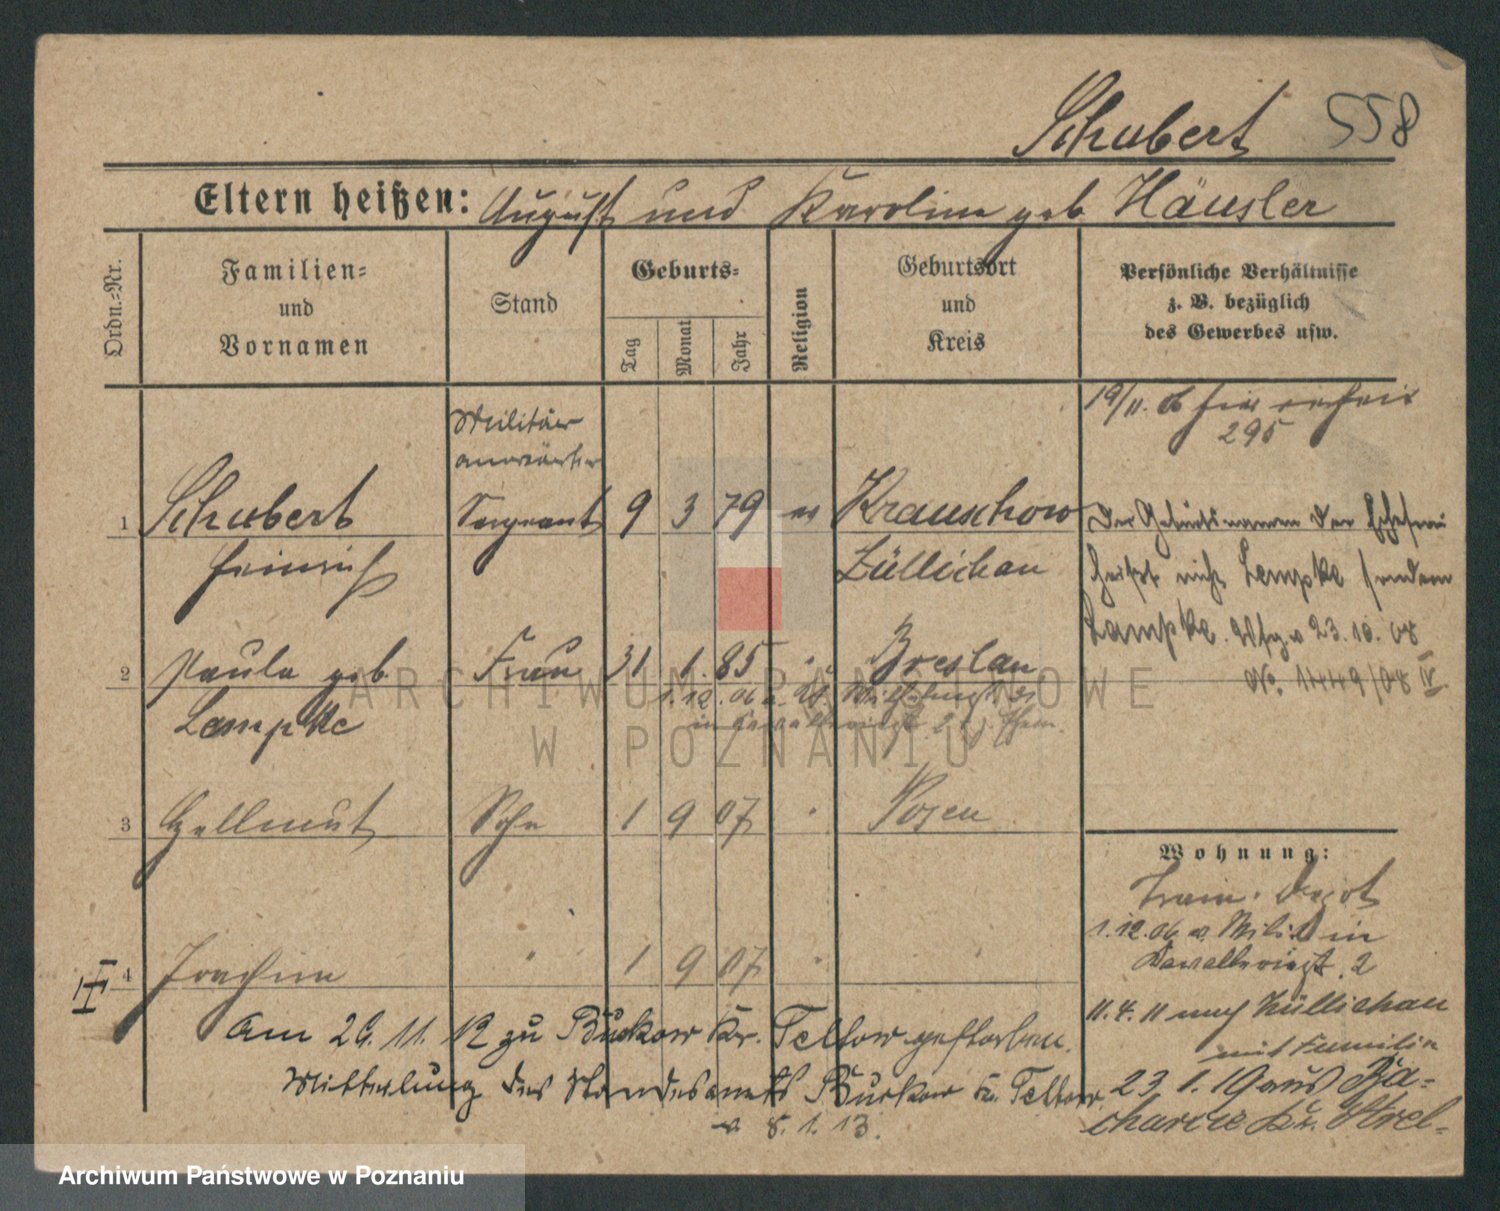 Schubert 558
Eltern heißen: August und Karoline geb Häusler
Ordn.-Nr.
Familien-
und
Vornamen
Stand
Geburts-
Tag
Monat
Jahr
Religion
Geburtsort
und
Kreis
Persönliche Verhältnisse
z. B. bezüglich
des Gewerbes usw.
19/11. 06 hier
295
Militär
anwärter
1 Schubert Sergeant 9 3 79 ev Krauschow
Heinrich Züllichau
Der Geburtsnamen der Ehefrau
heißt nicht Lempke sondern
Lampke. Vfg. v 23.10.08
No. 1449/08 IV
2 Paula geb. Frau 31 1 85 " Breslau
Lempke
1.12.06
3 Hellmut Sohn 1 9 07 " Posen
Wohnung:
Train-Depot
1.12.06 in
2
4 Joachim " 1 9 07 " "
11.4.11 nach Züllichau
mit Familie
23 1.19 aus Za-
charcie Kr. Strel-
Am 26.11.12 zu Buckow Kr. Teltow gestorben.
Mitteilung des Standesamts Buckow Kr. Teltow.
v. 8.1.13.
ARCHIWUM PAŃSTWOWE
W POZNANIU
Archiwum Państwowe w Poznaniu